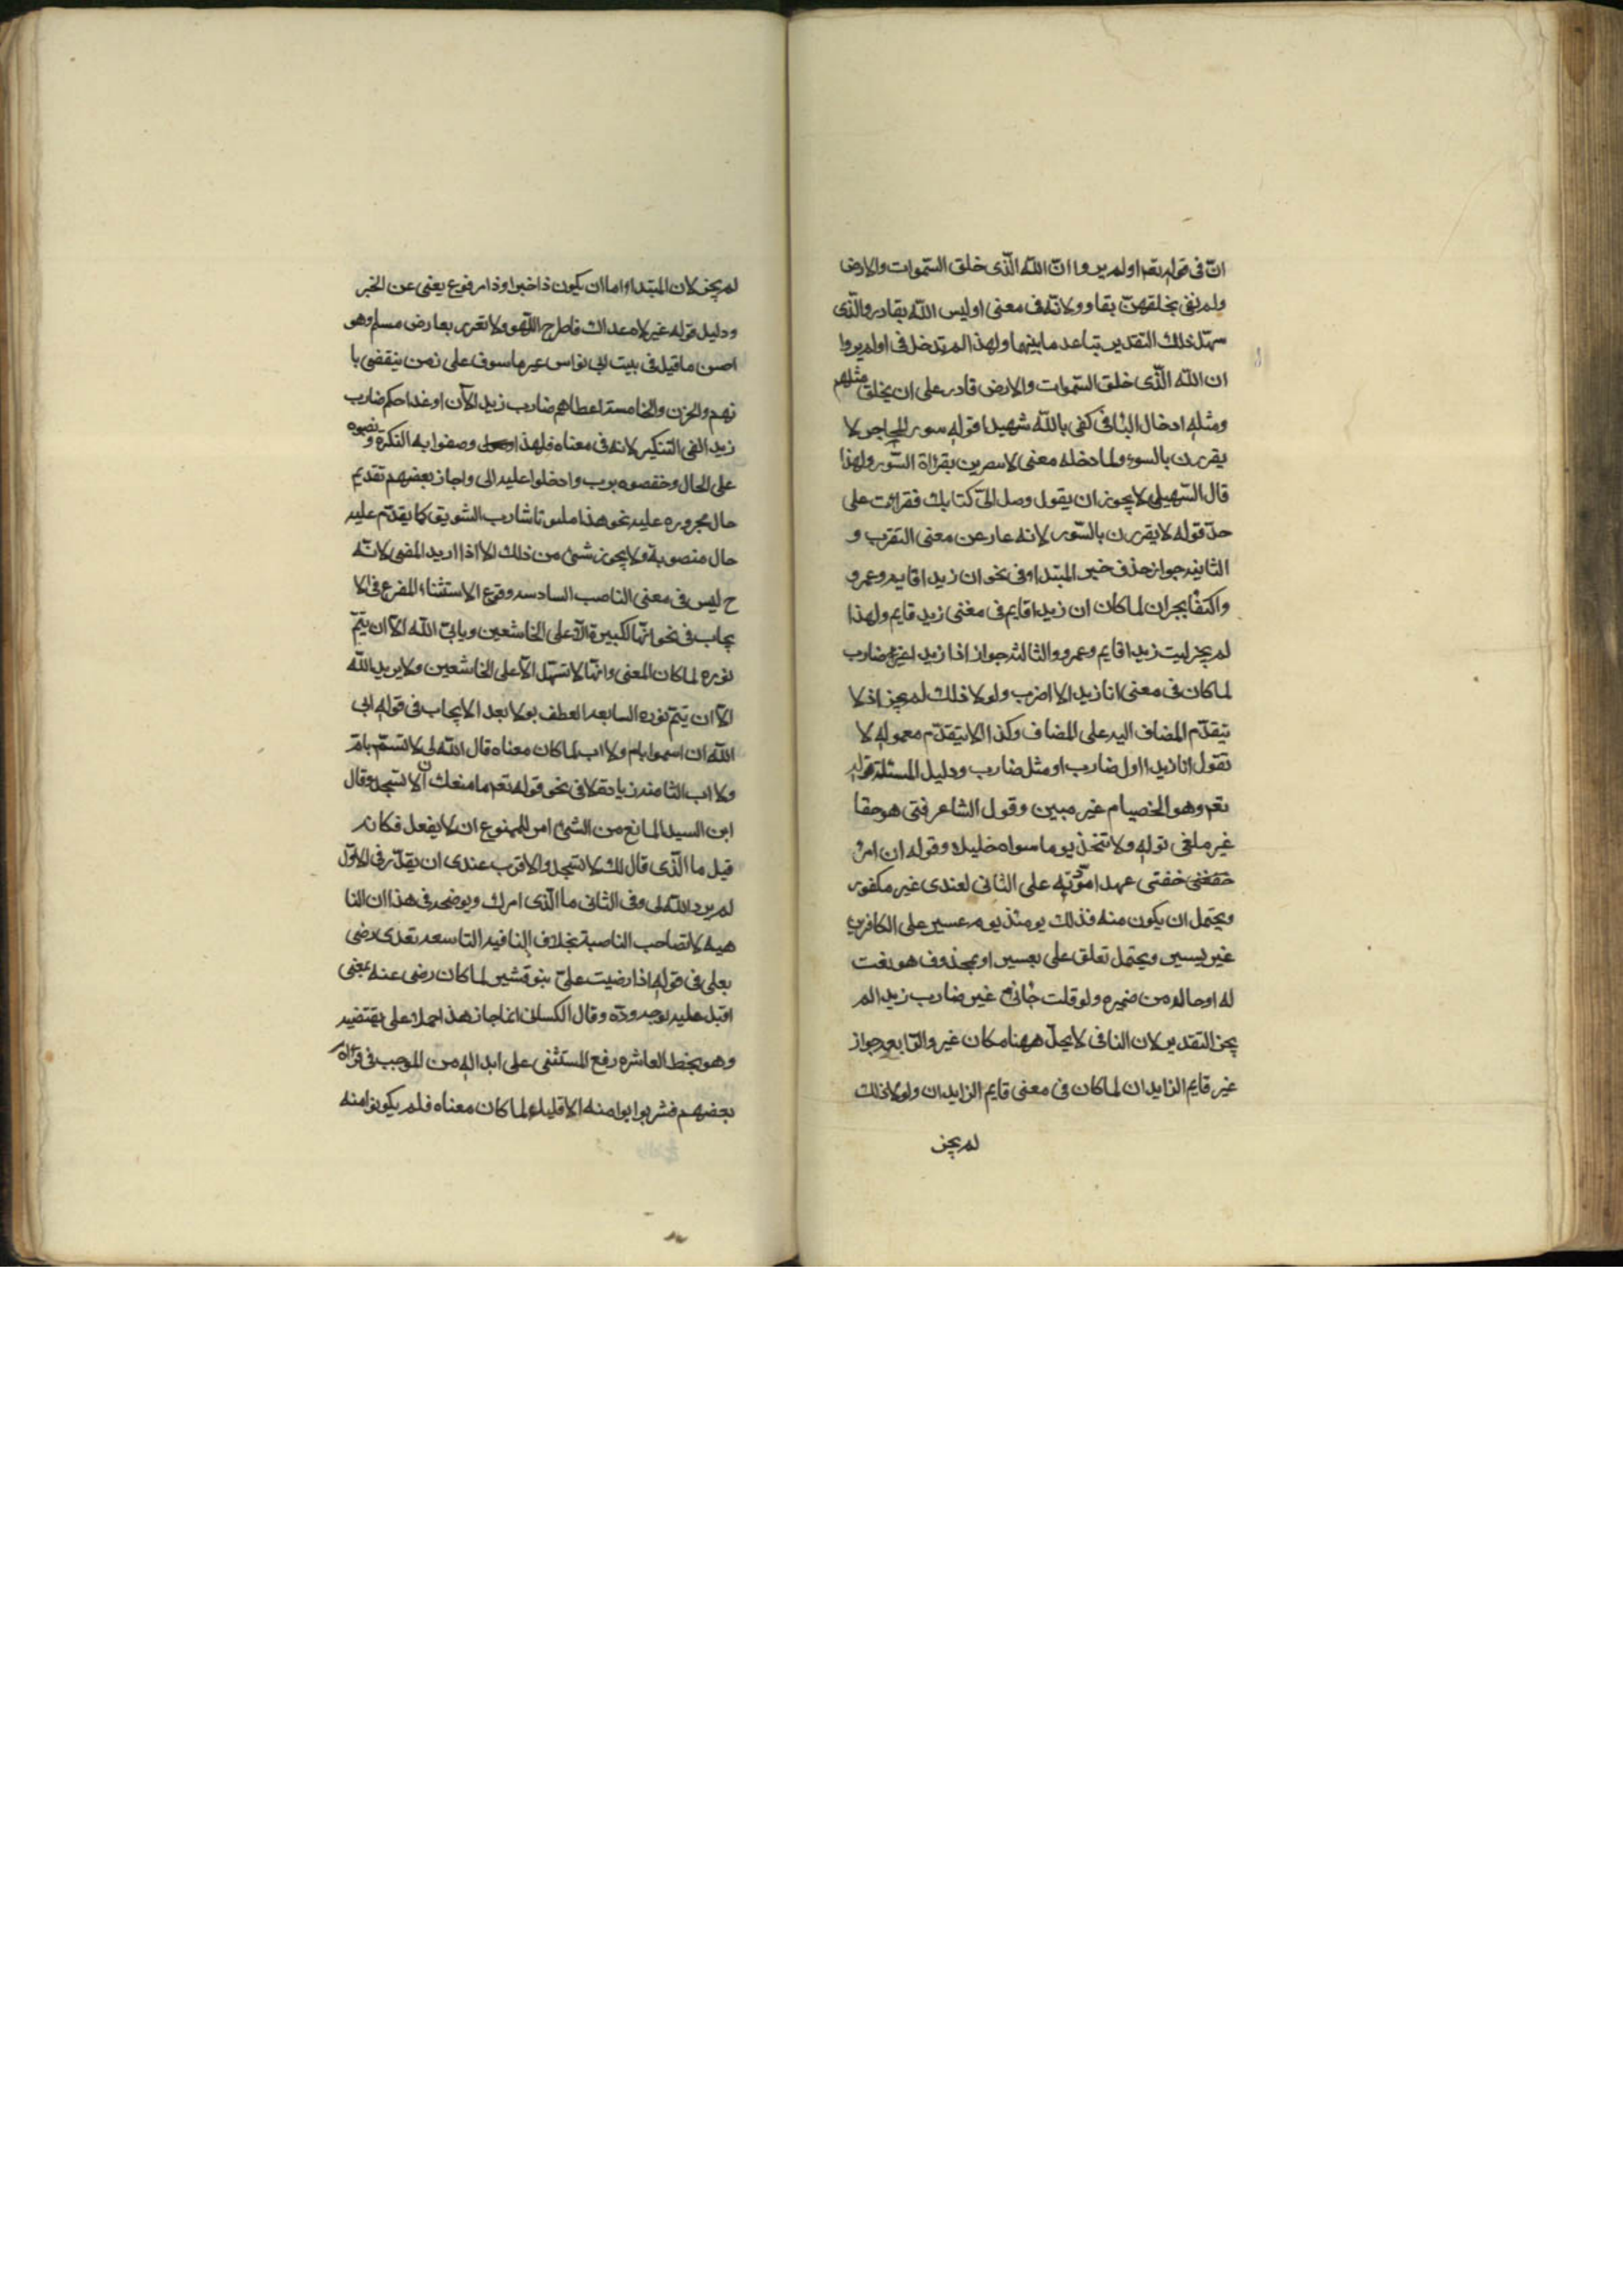 انّ فى قوله تعم اولم يروا انّ الله الّذى خلق السّموات والارض
ولم يعى بخلقهنّ بقاد ولانّه فى معنى اوليس الله بقادر والّذى
سهّل ذلك التقدير تباعد ما بينهما ولهذا لم تدخل فى اولم يروا
ان الله الّذى خلق السّموات والارض قادر على ان يخلق مثلهم
ومثله ادخال الباء فى كفى بالله شهيدا قوله سور المحاجر لا
يقررن بالسور ولما دخله معنى لا يقربن بقراة السّور ولهذا
قال السّهيلى لا يجوز ان يقول وصل الىّ كتابك فقرائت على
حدّ قوله لا يقررن بالسّور لانه عار عن معنى التقرب و
الثانيه جواز حذف خبر المبتدا فى نحو ان زيدا قايم وعمرو
واكتفا بخبر ان لما كان ان زيدا قايم فى معنى زيد قايم ولهذا
لم يجز ليت زيدا قايم وعمرو والثالثه جواز انا زيدا غير ضارب
لما كان فى معنى انا زيدا لا اضرب ولولا ذلك لم يجز اذ لا
يتقدّم المضاف اليه على المضاف وكذا لا يتقدّم معموله لا
تقول انا زيدا اول ضارب او مثل ضارب ودليل المسئلة قوله
تعم وهو الخصام غير مبين وقول الشاعر فتى هو حقا
غير ملغى توله ولا تتخذ يوما سواه خليلا وقوله ان امرا
خصّنى عهدا مودّته على الثانى لعندى غير مكفور
ويحتمل ان يكون منه فذلك يومئذ يوم عسير على الكافرين
غير يسير ويحتمل تعلق على بعسير او بمحذوف هو نعت
له او حال من ضميره ولو قلت جانى غير ضارب زيدا لم
يجز التقديم لان النافى لا يحلّ ههنا مكان غير والرّابعه جواز
غير قايم الزايدان لما كان فى معنى قايم الزايدان ولولا ذلك
لم يجز
لم يجز لان المبتدا اما ان يكون ذا خبر او ذا مرفوع يغنى عن الخبر
ودليل قوله غير لاه عداك فاطرح اللّهو ولا تغرر بعارض مسلم وهو
احسن ما قيل فى بيت ابى نواس غير ماسوف على زمن ينقضى با
لهم والحزن والخامسة اعطاهم ضارب زيد الآن او غدا حكم ضارب
زيد الفى التنكير لانه فى معناه فلهذا وصفوا به النكرة ونصبوه
على الحال وخفصوه برب وادخلوا عليه ال واجاز بعضهم تقديم
حال مجروره عليه نحو هذا ملتوتا شارب السّويق كما يقدّم عليه
حال منصوبه ولا يجوز شئ من ذلك الا اذا اريد المضى لانّه
ح ليس فى معنى الناصب السادسه وقوع الاستثناء المفرع فى الا
يجاب فى نحو انّها لكبيرة الّا على الخاشعين ويابى الله الّا ان يتمّ
نوره لما كان المعنى وانّها لا تسهل الّا على الخاشعين ولا يريد الله
الّا ان يتمّ نوره السابعه العطف بولا بعد الايجاب فى قوله ابى
الله ان اسموا بام ولا اب لما كان معناه قال الله لى لا تسم بام
ولا اب الثامنه زيادة لا فى نحو قوله تعم ما منعك ان لا تسجد وقال
ابن السيد المانع من الشئ امر للممنوع ان لا يفعل فكانه
قيل ما الّذى قال لك لا تسجد والاقرب عندى ان يقدّر فى الاوّل
لم يرد الله لى وفى الثانى ما الّذى امرك ويوضحه فى هذا ان النا
هيه لا تصاحب الناصبة بخلاف النافيه التاسعه تعدى رضى
بعلى فى قوله اذا رضيت علىّ بنو قشير لما كان رضى عنه بمعنى
اقبل عليه بوجه ودّه وقال الكسائى انما جاز هذا حملا على نقيضه
وهو سخط العاشره رفع المستثنى على ابداله من الموجب فى قراة
بعضهم فشربوا منه الا قليلا لما كان معناه فلم يكونوا منه